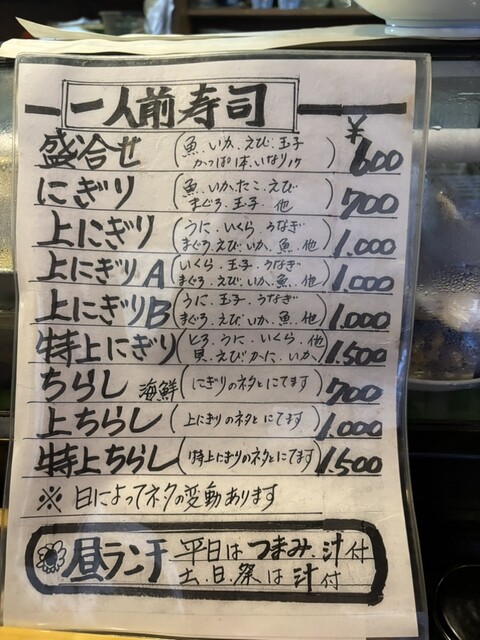 一人前寿司
¥
盛合せ(魚.いか.えび.玉子 600
かっぱ1本.いなり1ケ)
にぎり(魚.いか.たこ.えび 700
まぐろ.玉子.他)
上にぎり(うに.いくら.うなぎ 1.000
まぐろ.えび.いか.魚.他)
上にぎりA(いくら.玉子.うなぎ 1.000
まぐろ.えび.いか.魚.他)
上にぎりB(うに.玉子.うなぎ 1.000
まぐろ.えび.いか.魚.他)
特上にぎり(とろ.うに.いくら.他 1.500
貝.えび.かに.いか)
ちらし 海鮮(にぎりのネタとにてます) 700
上ちらし(上にぎりのネタとにてます) 1.000
特上ちらし(特上にぎりのネタとにてます) 1.500
※ 日によってネタの変動あります
昼ランチ 平日は つまみ.汁付
土.日.祭は 汁付